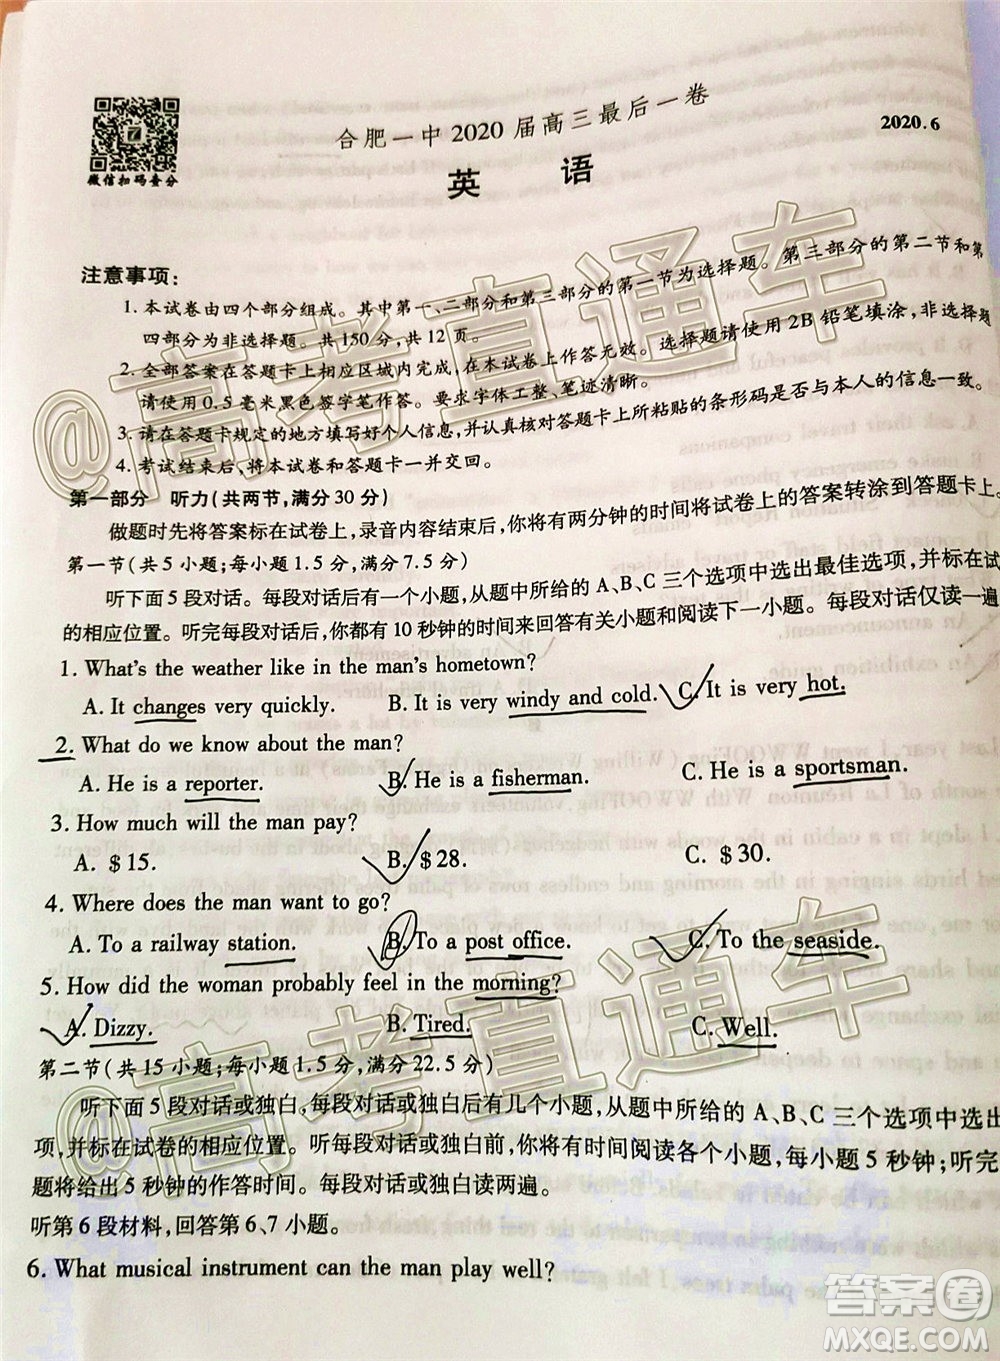 合肥一中2020届高三最后一卷
2020.6
微信扫码查分
英 语
注意事项：
1. 本试卷由四个部分组成。其中第一、二部分和第三部分的第一节为选择题。第三部分的第二节和第
四部分为非选择题。共150分，共12页。
2. 全部答案在答题卡上相应区域内完成，在本试卷上作答无效。选择题请使用2B铅笔填涂，非选择题
请使用0.5毫米黑色签字笔作答。要求字体工整、笔迹清晰。
3. 请在答题卡规定的地方填写好个人信息，并认真核对答题卡上所粘贴的条形码是否与本人的信息一致。
4. 考试结束后，将本试卷和答题卡一并交回。
第一部分 听力(共两节,满分30分)
做题时先将答案标在试卷上，录音内容结束后，你将有两分钟的时间将试卷上的答案转涂到答题卡上。
第一节(共5小题;每小题1.5分,满分7.5分)
听下面5段对话。每段对话后有一个小题，从题中所给的A、B、C三个选项中选出最佳选项，并标在试
的相应位置。听完每段对话后，你都有10秒钟的时间来回答有关小题和阅读下一小题。每段对话仅读一遍
1. What's the weather like in the man's hometown?
A. It changes very quickly. B. It is very windy and cold. C. It is very hot.
2. What do we know about the man?
A. He is a reporter. B. He is a fisherman. C. He is a sportsman.
3. How much will the man pay?
A. $15. B. $28. C. $30.
4. Where does the man want to go?
A. To a railway station. B. To a post office. C. To the seaside.
5. How did the woman probably feel in the morning?
A. Dizzy. B. Tired. C. Well.
第二节(共15小题;每小题1.5分,满分22.5分)
听下面5段对话或独白，每段对话或独白后有几个小题，从题中所给的A、B、C三个选项中选出
项，并标在试卷的相应位置。听每段对话或独白前，你将有时间阅读各个小题，每小题5秒钟；听完
题将给出5秒钟的作答时间。每段对话或独白读两遍。
听第6段材料，回答第6、7小题。
6. What musical instrument can the man play well?
@高考直通车
@高考直通车
答案圈
MXQE.COM